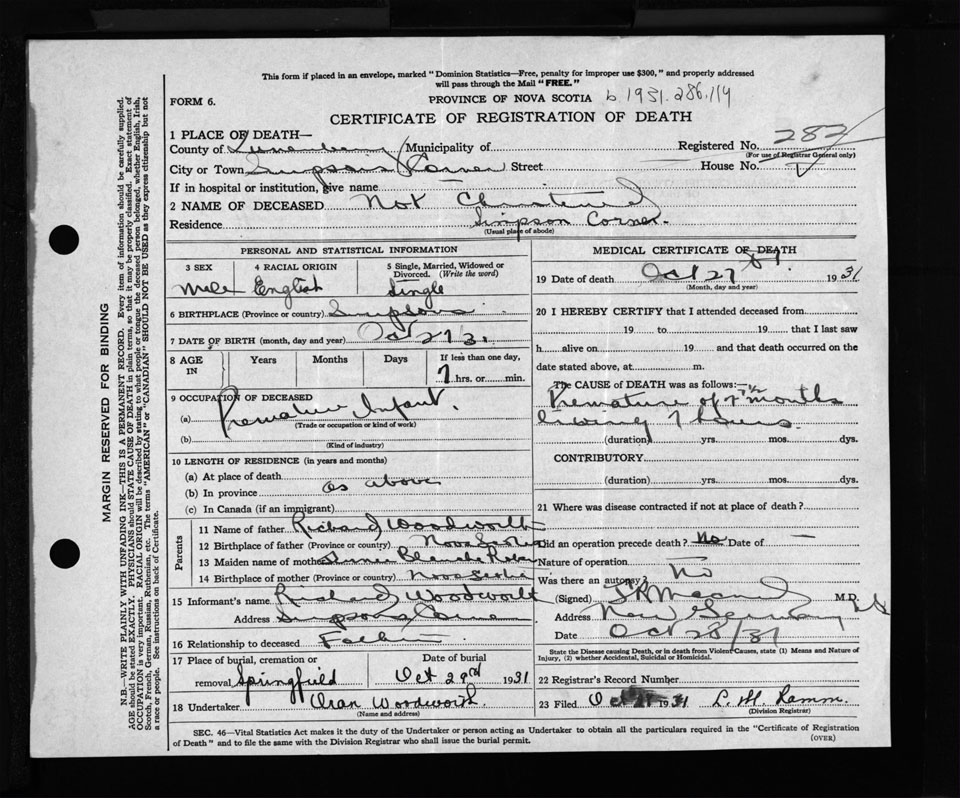 This form if placed in an envelope, marked "Dominion Statistics—Free, penalty for improper use $300," and properly addressed
will pass through the Mail "FREE."
FORM 6.
PROVINCE OF NOVA SCOTIA b 1931.286.114
CERTIFICATE OF REGISTRATION OF DEATH
1 PLACE OF DEATH—
County of Lunenburg Municipality of Registered No. 282
(For use of Registrar General only)
City or Town Simpsons Corner Street House No.
If in hospital or institution, give name
2 NAME OF DECEASED Not Christened
Residence Simpson Corner.
(Usual place of abode)
PERSONAL AND STATISTICAL INFORMATION
3 SEX 4 RACIAL ORIGIN 5 Single, Married, Widowed or Divorced. (Write the word)
Male English Single
6 BIRTHPLACE (Province or country) Simpsons
7 DATE OF BIRTH (month, day and year) Oct 27 31
8 AGE IN Years Months Days If less than one day,
7 hrs. or min.
9 OCCUPATION OF DECEASED
(a) Premature Infant.
(Trade or occupation or kind of work)
(b)
(Kind of industry)
10 LENGTH OF RESIDENCE (in years and months)
(a) At place of death
(b) In province as above
(c) In Canada (if an immigrant)
Parents
11 Name of father Richard Woodworth
12 Birthplace of father (Province or country) Nova Scotia
13 Maiden name of mother Blanche
14 Birthplace of mother (Province or country) Nova Scotia
15 Informant's name Richard Woodworth
Address Simpsons Corner
16 Relationship to deceased Father
17 Place of burial, cremation or removal Springfield Date of burial Oct 29rd 1931
18 Undertaker Oran Woodworth
(Name and address)
MEDICAL CERTIFICATE OF DEATH
19 Date of death Oct 27 1931
(Month, day and year)
20 I HEREBY CERTIFY that I attended deceased from
19 to 19 that I last saw
h alive on 19 and that death occurred on the
date stated above, at m.
The CAUSE OF DEATH was as follows:—
Premature of 7 1/2 months
living 7 hours.
(duration) yrs. mos. dys.
CONTRIBUTORY
(duration) yrs. mos. dys.
21 Where was disease contracted if not at place of death?
Did an operation precede death? No Date of —
Nature of operation
Was there an autopsy? No
(Signed) M.D.
Address New Germany
Date Oct 28/31
State the Disease causing Death, or in death from Violent Causes, state (1) Means and Nature of
Injury, (2) whether Accidental, Suicidal or Homicidal.
22 Registrar's Record Number
23 Filed Oct 1931 L. M.
(Division Registrar)
SEC. 46—Vital Statistics Act makes it the duty of the Undertaker or person acting as Undertaker to obtain all the particulars required in the "Certificate of Registration
of Death" and to file the same with the Division Registrar who shall issue the burial permit. (OVER)
MARGIN RESERVED FOR BINDING
N.B.—WRITE PLAINLY WITH UNFADING INK—THIS IS A PERMANENT RECORD. Every item of information should be carefully supplied.
AGE should be stated EXACTLY. PHYSICIANS should STATE CAUSE OF DEATH in plain terms, so that it may be properly classified. Exact statement of
OCCUPATION is very important. RACIAL ORIGIN will be described by stating to what people or tongue the deceased person belonged, whether English, Irish,
Scotch, French, German, Russian, Ruthenian, etc. The terms "AMERICAN" or "CANADIAN" SHOULD NOT BE USED as they express citizenship but not
a race or people. See instructions on back of Certificate.